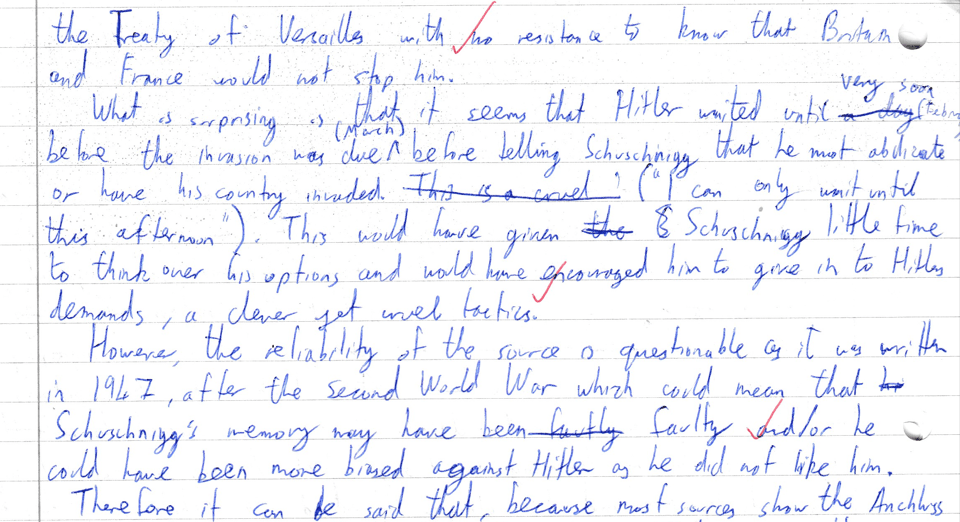 the Treaty of Versailles with no resistance to know that Britain
and France would not stop him.
very soon
What is surprising is that it seems that Hitler waited until a day (Februa
(March)
before the invasion was due before telling Schuschnigg that he must abdicate
or have his country invaded. This is a cruel ("I can only wait until
this afternoon"). This would have given the Schuschnigg little time
to think over his options and would have encouraged him to give in to Hitlers
demands, a clever yet cruel tactics.
However, the reliability of the source is questionable as it was written
in 1947, after the second World War which could mean that
Schuschnigg's memory may have been faulty faulty and/or he
could have been more biased against Hitler as he did not like him.
Therefore it can be said that, because most sources show the Anchluss